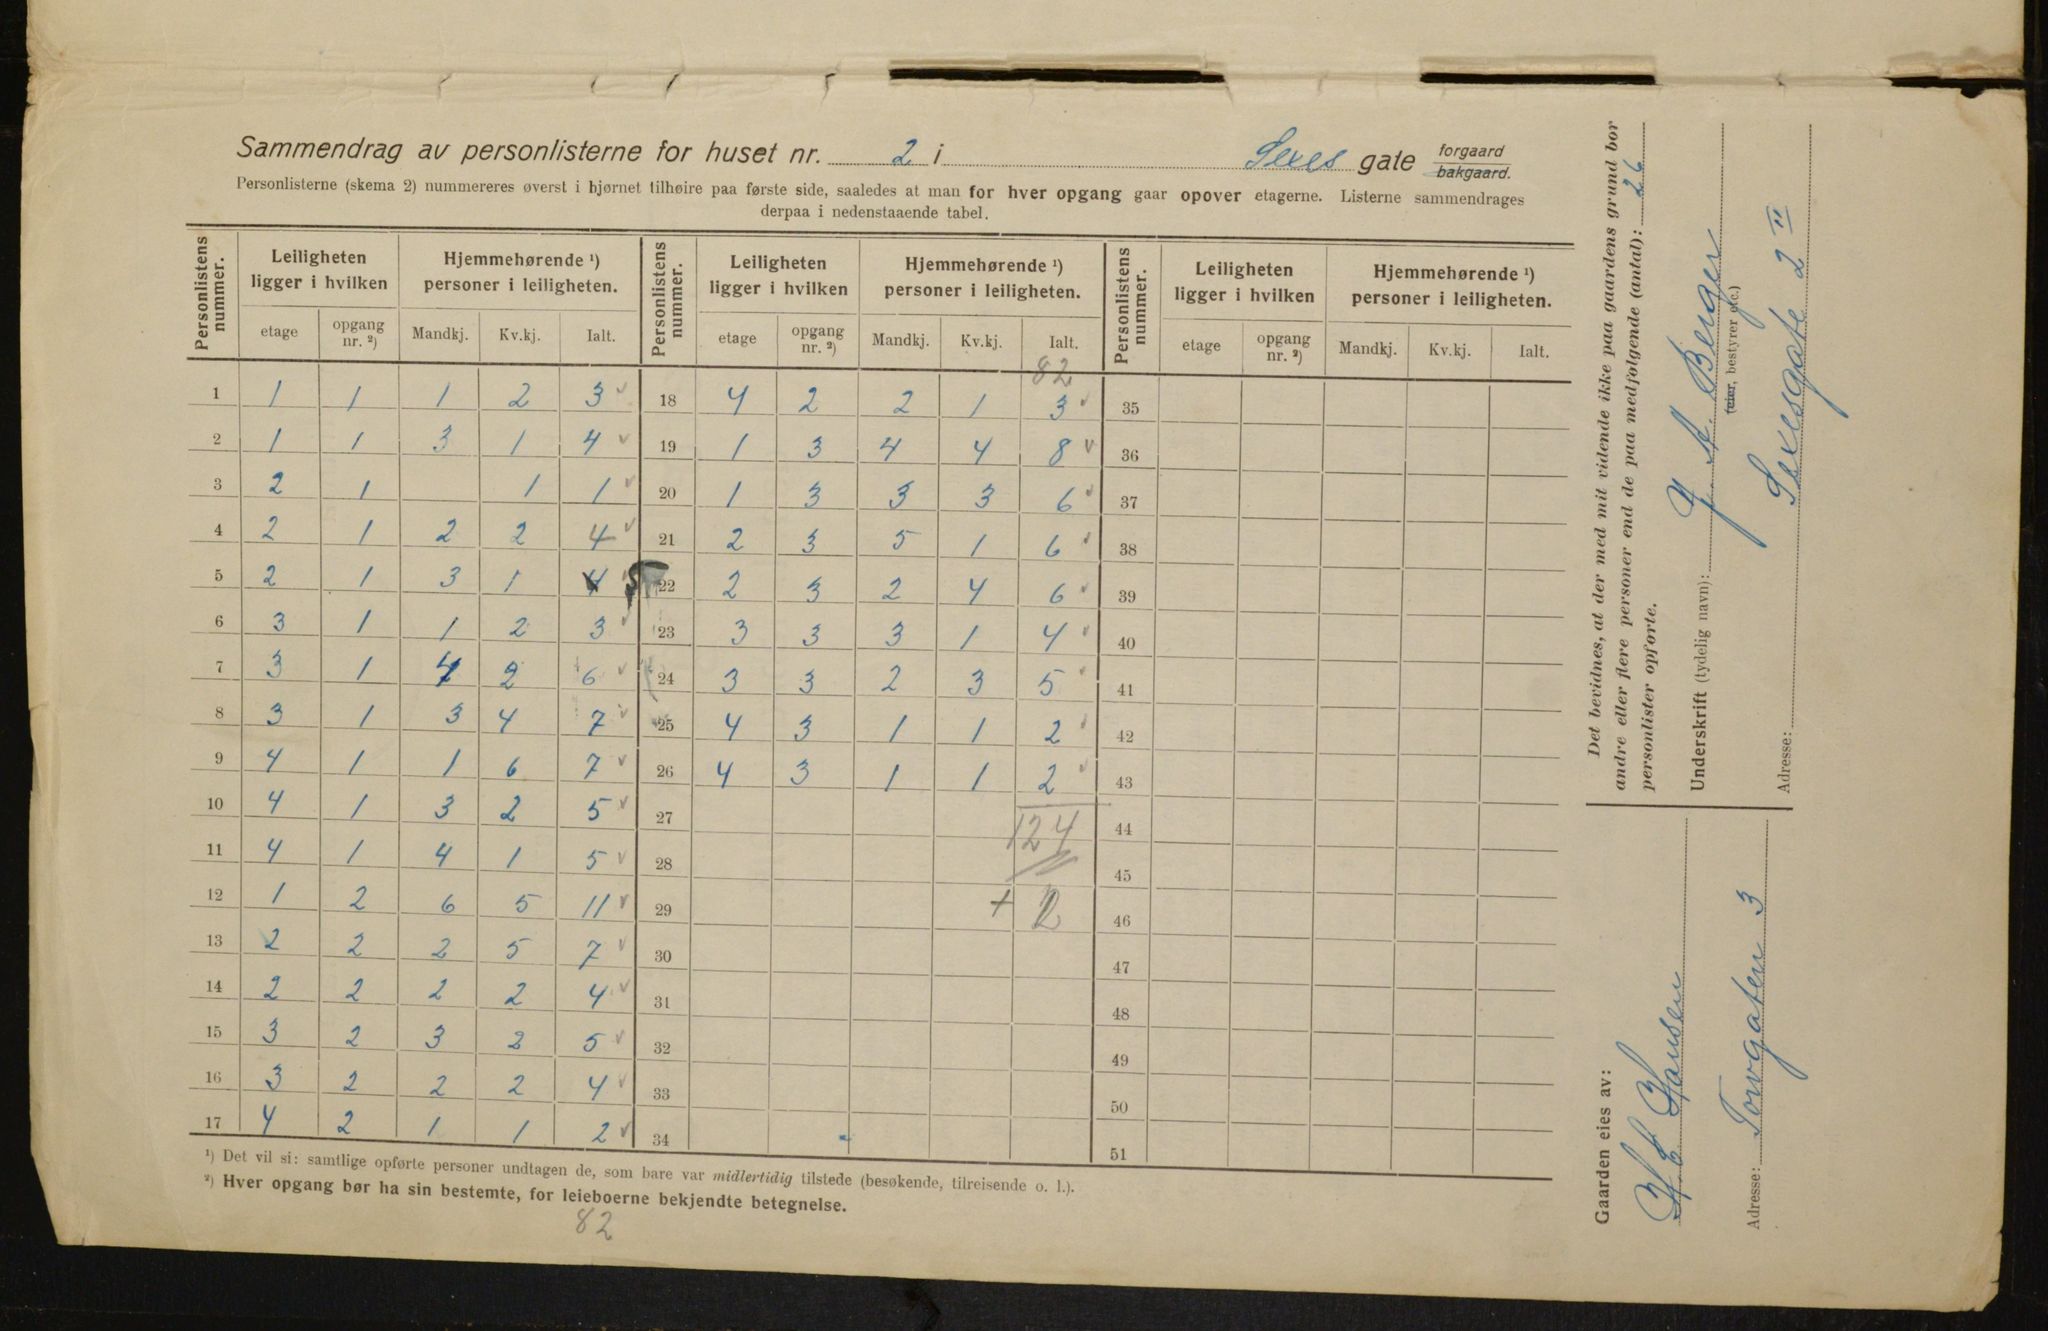 Sammendrag av personlisterne for huset nr. 2 i Sexes gate forgaard
bakgaard.
Personlisterne (skema 2) nummereres øverst i hjørnet tilhøire paa første side, saaledes at man for hver opgang gaar opover etagerne. Listerne sammendrages
derpaa i nedenstaaende tabel.
Personlistens nummer. Leiligheten ligger i hvilken Hjemmehørende ¹) personer i leiligheten. Personlistens nummer. Leiligheten ligger i hvilken Hjemmehørende ¹) personer i leiligheten. Personlistens nummer. Leiligheten ligger i hvilken Hjemmehørende ¹) personer i leiligheten.
etage opgang nr. ²) Mandkj. Kv.kj. Ialt. etage opgang nr. ²) Mandkj. Kv.kj. Ialt. etage opgang nr. ²) Mandkj. Kv.kj. Ialt.
82
1 1 1 1 2 3 18 4 2 2 1 3 35
2 1 1 3 1 4 19 1 3 4 4 8 36
3 2 1 1 1 20 1 3 3 3 6 37
4 2 1 2 2 4 21 2 3 5 1 6 38
5 2 1 3 1 4 22 2 3 2 4 6 39
6 3 1 1 2 3 23 3 3 3 1 4 40
7 3 1 4 2 6 24 3 3 2 3 5 41
8 3 1 3 4 7 25 4 3 1 1 2 42
9 4 1 1 6 7 26 4 3 1 1 2 43
10 4 1 3 2 5 27 124 44
11 4 1 4 1 5 28 45
12 1 2 6 5 11 29 + 2 46
13 2 2 2 5 7 30 47
14 2 2 2 2 4 31 48
15 3 2 3 2 5 32 49
16 3 2 2 2 4 33 50
17 4 2 1 1 2 34 51
¹) Det vil si: samtlige opførte personer undtagen de, som bare var midlertidig tilstede (besøkende, tilreisende o. l.).
²) Hver opgang bør ha sin bestemte, for leieboerne bekjendte betegnelse.
82
Det bevidnes, at der med mit vidende ikke paa gaardens grund bor
andre eller flere personer end de paa medfølgende (antal): 26
personlister opførte.
Underskrift (tydelig navn): J. A. Berger
(eier, bestyrer etc.)
Adresse: Sexesgate 2 II
Gaarden eies av:
H E Hansen
Adresse: Torvgaten 3